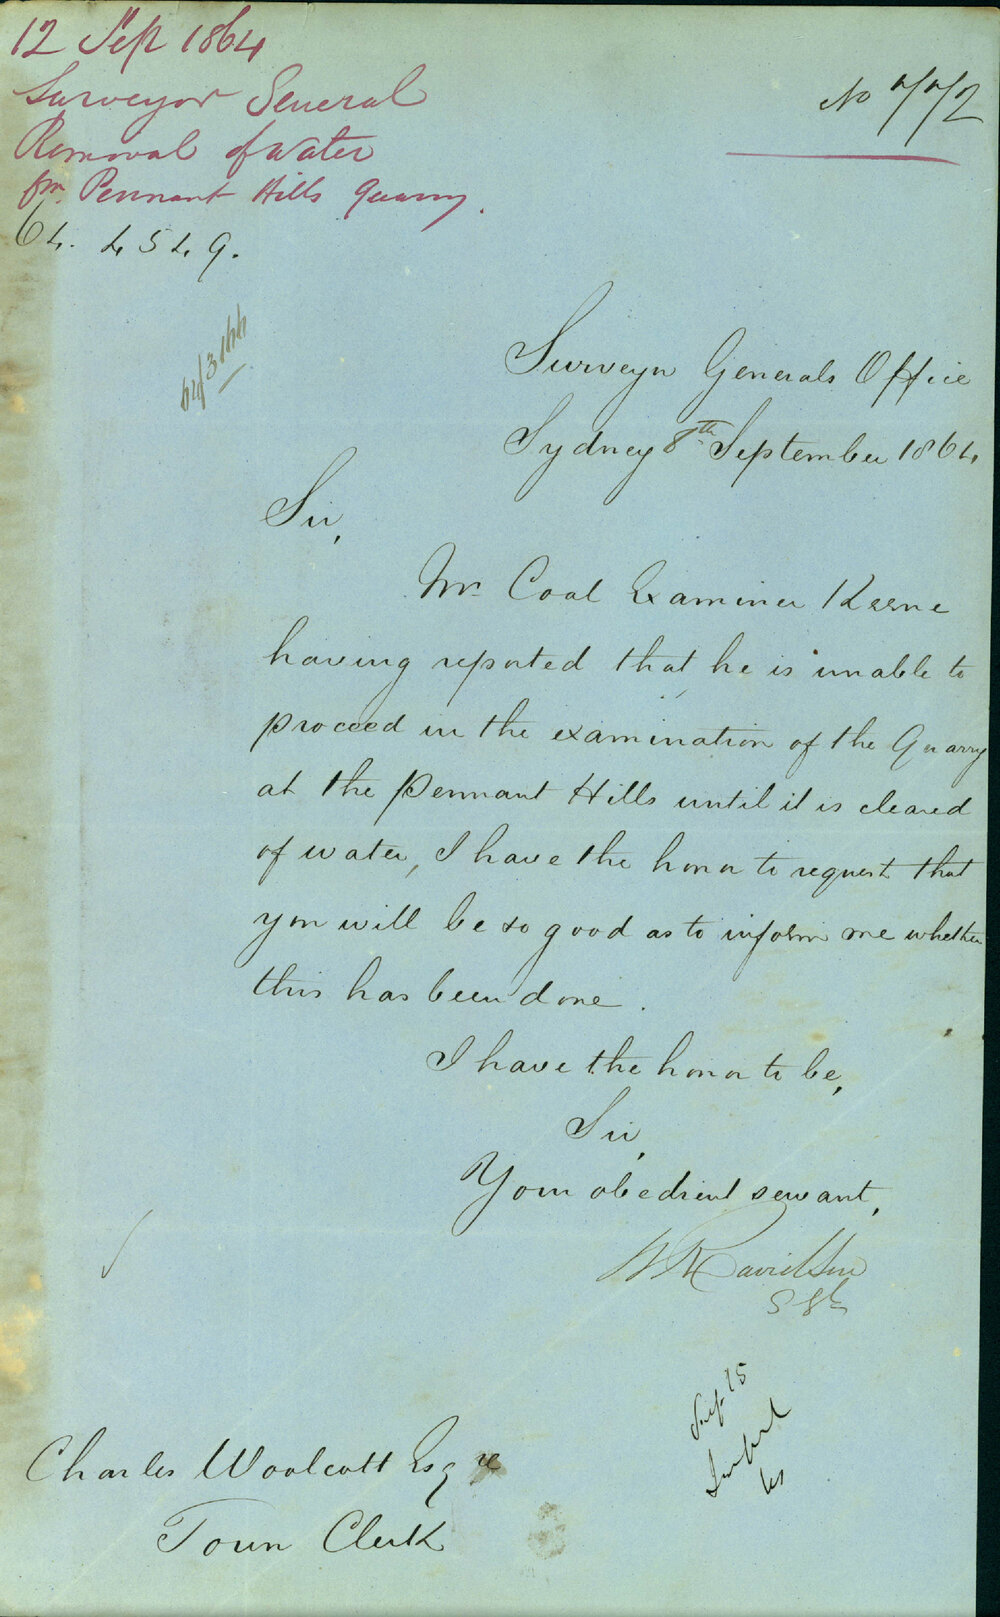 12 Sep 1864
Surveyor General
Removal of water
fm. Pennant Hills Quarry.
64. 4549.
No 772
64/3144
Surveyor Generals Office
Sydney 8th September 1864
Sir,
Mr. Coal Examiner Keene
having reported that he is unable to
proceed in the examination of the Quarry
at the Pennant Hills until it is cleared
of water, I have the honor to request that
you will be so good as to inform me whether
this has been done.
I have the honor to be,
Sir,
Your obedient servant,
W R Davidson
S Gl
Sep. 15
Charles Woolcott Esqre
Town Clerk